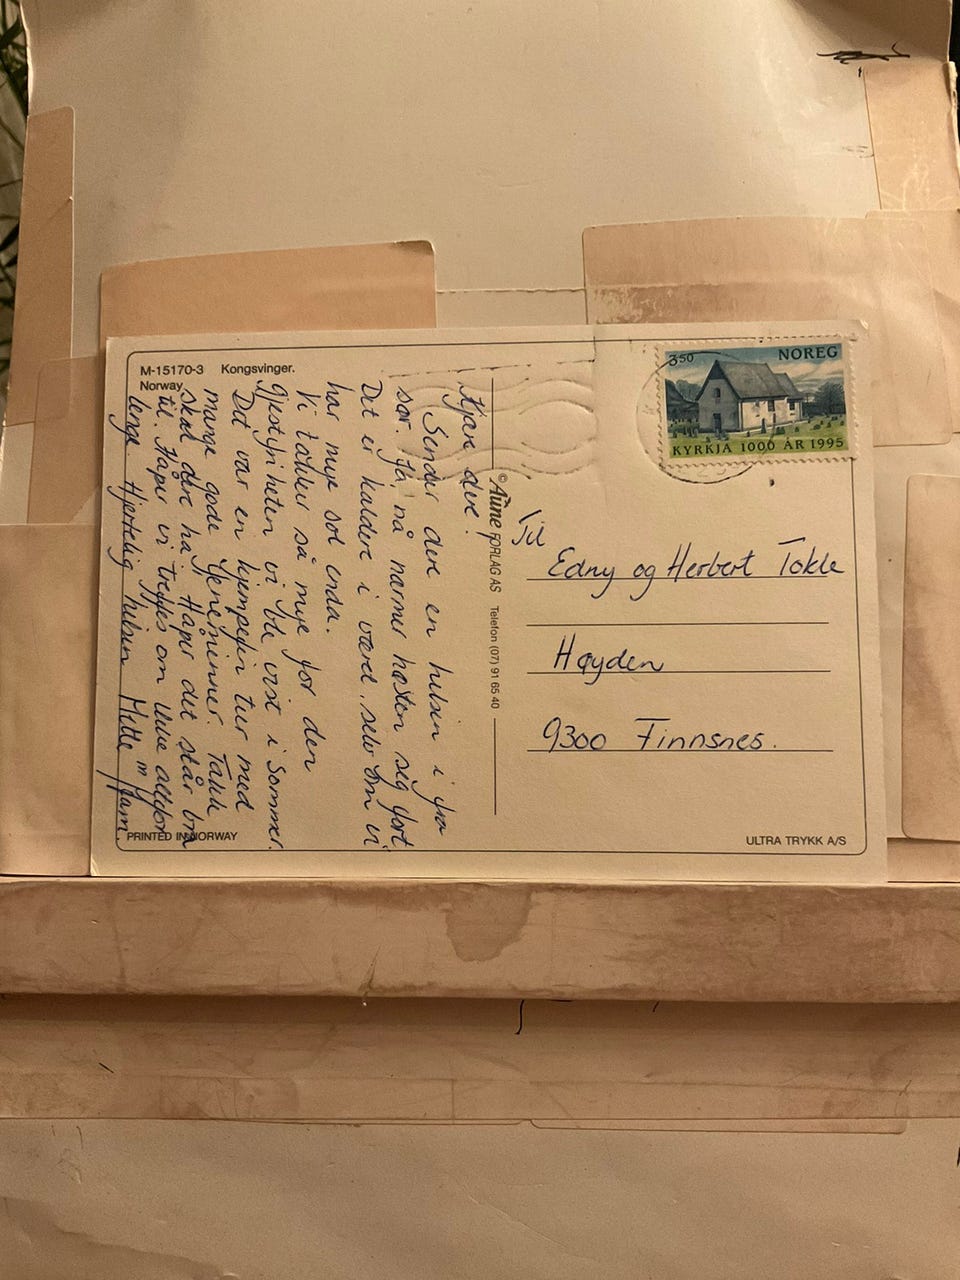 M-15170-3 Kongsvinger.
Norway
Kjære dere!
Sender dere en hilsen i fra
sør. Ja, nå nærmer høsten seg fort
Det er kaldere i været, selv om vi
har mye sol enda.
Vi takker så mye for den
gjestfriheten vi ble vist i sommer.
Det var en kjempefin tur med
mange gode minner. Takk
skal dere ha. Håper det står bra
til. Håper vi treffes om ikke altfor
lenge. Hjertelig hilsen Mette m/fam.
PRINTED IN NORWAY
© Aune FORLAG AS Telefon (07) 91 65 40
350 NOREG
KYRKJA 1000 ÅR 1995
Til
Edny og Herbert Tokle
Høyden
9300 Finnsnes.
ULTRA TRYKK A/S